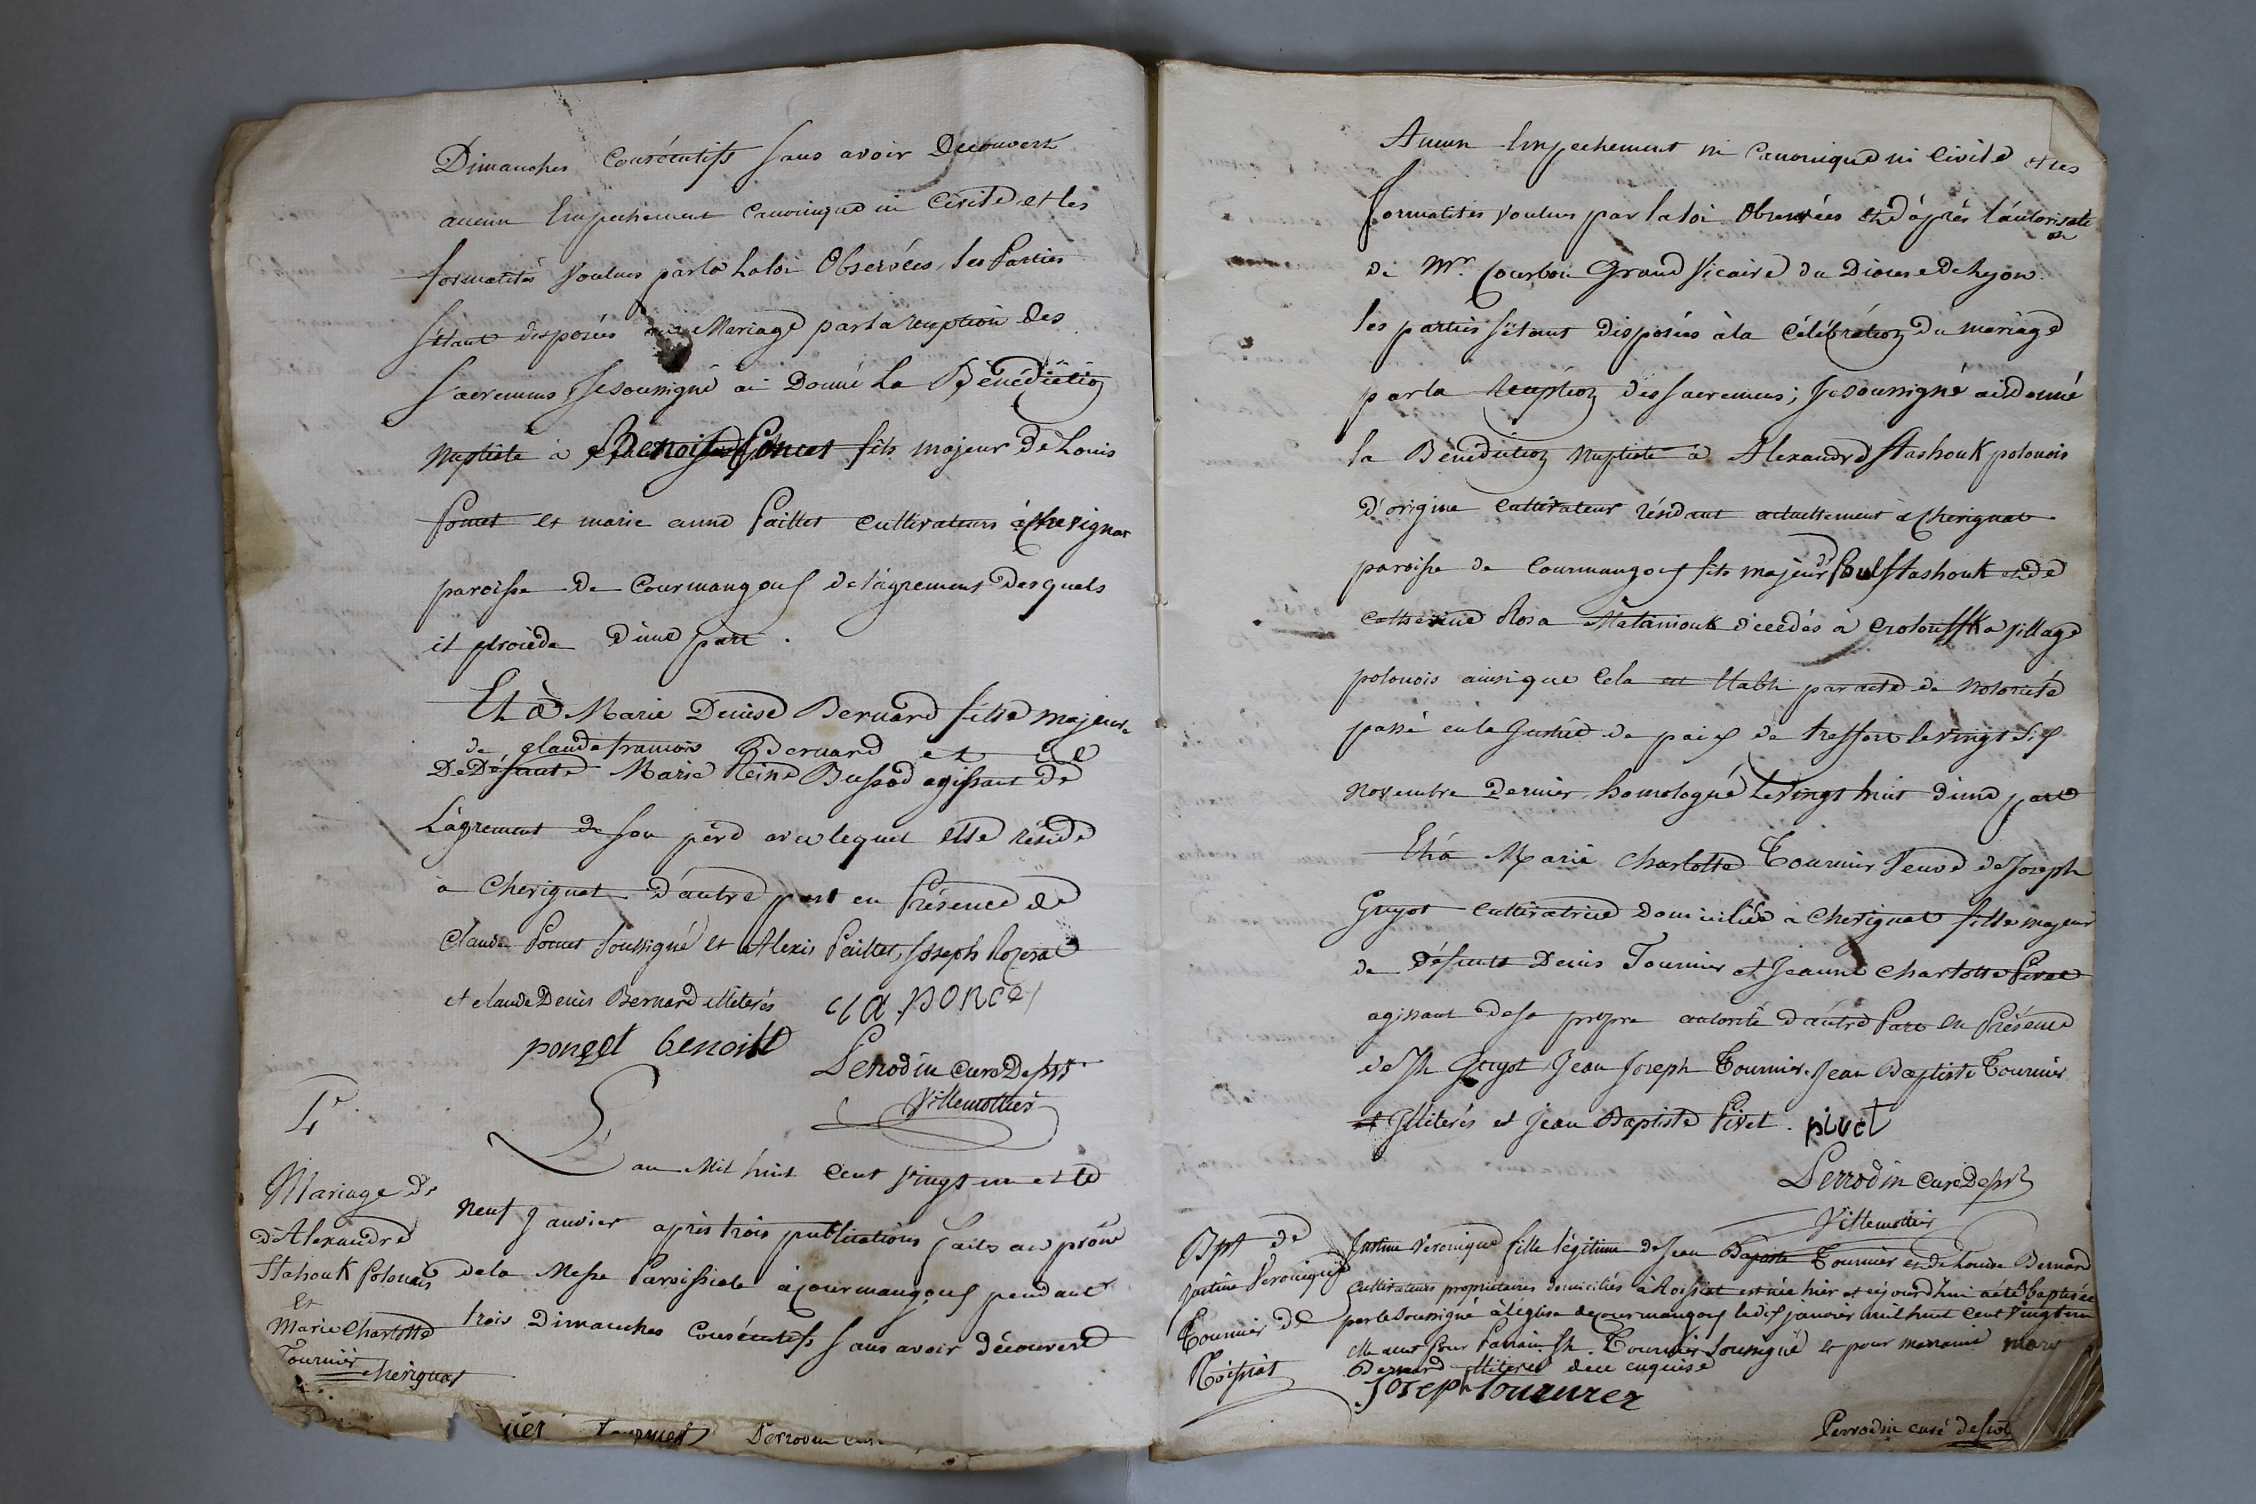 Dimanches Consécutifs sans avoir Découvert
aucun Empechement Canonique ni Civile et les
formalités voulues par la Loi Observées, les Parties
s'étant disposées au Mariage par la reception des
sacremens Je soussigné ai Donné La Bénédiction
nuptiale à Benoit Poncet fils majeur De Louis
Poncet et marie anne Paillet cultivateurs à Chevignat
paroisse de Courmangoux de l'agrement Desquels
il procède d'une part.
Et à Marie Denise Bernard fille majeure
de claude francois Bernard et de
De Défunte Marie Reine Bussod agissant de
L'agrement de son père avec lequel elle réside
à Chevignat d'autre part en Présence de
Claude Poncet soussigné et Alexis Paillet, Joseph
et claude Denis Bernard illiterés cla ponce
poncet benoitt
Perrodin curé Desst
Villemottier
4e
Mariage de
d'Alexandre
Stahouk Polonais
Et
Marie Charlotte
Tournier
Chevignat
L'an Mil huit Cent vingt un et le
neuf Janvier après trois publications faites au prône
de la Messe Paroissiale à Courmangoux pendant
trois Dimanches Consécutifs sans avoir découvert
Tournier Perrodin curé
Aucun Empechement ni Canonique ni Civile et les
formalités voulues par la loi Observées et d'après l'autorisati
on
de Mr. Courbon Grand Vicaire du Diocese de Lyon.
les parties s'étant disposées à la Célébration du mariage
par la Reception des sacremens; Je soussigné ai donné
la Bénédiction nuptiale à Alexandre Stashouk polonois
D'origine Cultivateur résidant actuellement à Chevignat
paroisse de Courmangoux fils majeur de Poul Stashouk et de
Catherine Rosa Mataniouk décédés à Crolouffka village
polonois ainsi que Cela est Etabli par acte de notoriété
passé en la Justice de paix de treffort le vingt six
novembre Dernier, homologué Le vingt huit d'une part
Et à Marie Charlotte Tournier veuve de Joseph
Guyot Cultivatrice Domiciliée à Chevignat fille majeur
de Défunts Denis Tournier et Jeanne Charlotte Pivet
agissant de sa propre autorité d'autre Part en Présence
de Jh Guyot Jean Joseph Tournier, Jean Baptiste Tournier
et Illiterés et Jean Baptiste Pivet. pivet
Perrodin Curé Desst
Villemottier
Bpt de
Justine Veronique
Tournier de
Roissiat
Justine Veronique fille légitime de Jean Baptiste Tournier et de Louise Bernard
Cultivateurs propriétaires domiciliés à Roissiat est née hier et aujourd'hui a été baptisée
par le soussigné à l'église de courmangoux le dix janvier mil huit cent vingt un
elle a eu pour Parrain Jh. Tournier soussigné et pour marraine marie
Bernard illiterés de ce enquise
Josep Tournier
Perrodin curé dessst